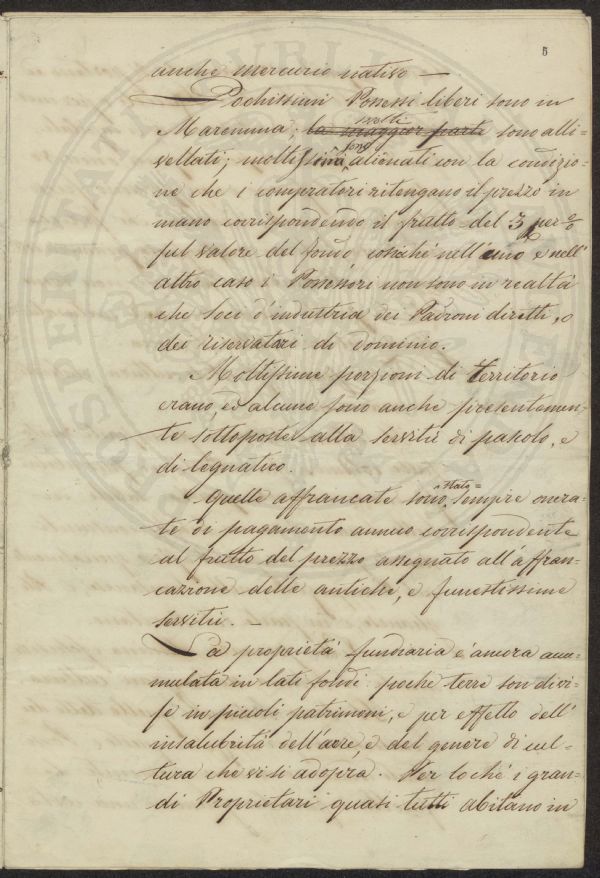 5
anche mercurio nativo —
Pochissimi Possessi liberi sono in
Maremma, la maggior parte molti sono alli-
vellati; molti sono alienati con la condizio-
ne che i compratori ritengano il prezzo in
mano corrispondendo il frutto del 3 per %
sul valore del fondo cosiche nell'uno e nell'
altro caso i Possessori non sono in realtà
che soci d'industria dei Padroni diretti, o
dei riservatari di dominio.
Moltissime porzioni di territorio
erano, ed alcune sono anche presentemen-
te sottoposte alla servitù di pascolo, e
di legnatico.
Quelle affrancate sono state sempre onera-
te di pagamento annuo corrispondente
al frutto del prezzo assegnato all'affran-
cazione delle antiche, e funestissime
servitù. —
La proprietà fundiaria è ancora accu-
mulata in lati fondi. poche terre son divi-
se in piccoli patrimoni, e per effetto dell'
insalubrità dell'aere, e del genere di cul-
tura che vi si adopra. Per lo chè i gran-
di Proprietari quasi tutti abitano in
PROSPERITATI PUBLICAE